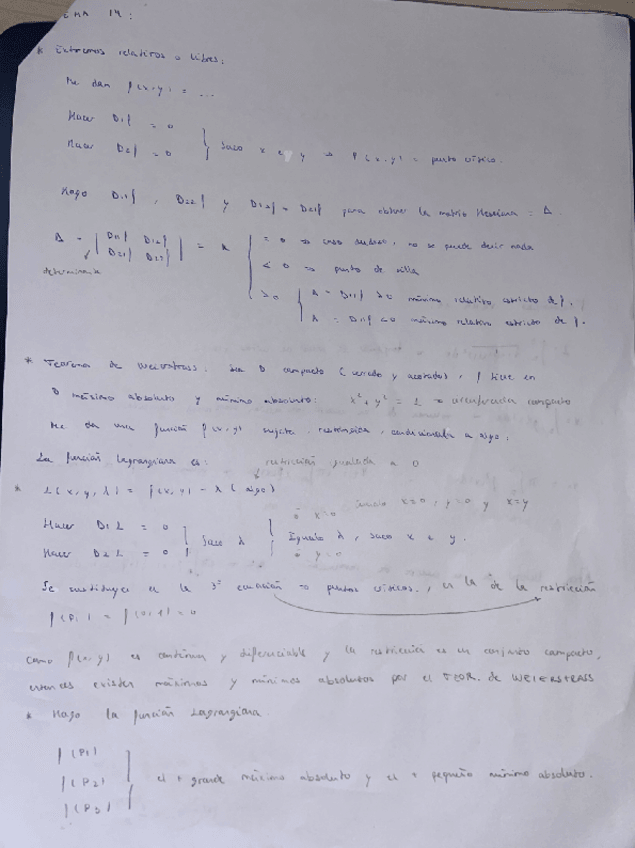 EMA 14:
* Extremos relativos o libres:
Me dan f(x,y) = ...
Hacer D1f = 0
Hacer D2f = 0 } Saco x e y => P(x,y) = punto crítico.
Hago D11f, D22f y D12f = D21f para obtener la matriz Hessiana = Δ.
Δ = | D11f D12f | = A { = 0 => caso dudoso, no se puede decir nada
| D21f D22f | < 0 => punto de silla
determinante
> 0 { A = D11f > 0 mínimo relativo estricto de f.
A = D11f < 0 máximo relativo estricto de f.
* Teorema de Weierstrass. Sea D compacto (cerrado y acotado), f tiene en
D máximo absoluto y mínimo absoluto: x² + y² = 1 => circunferencia compacto
Me da una función f(x,y) sujeta, restringida, condicionada a algo.
La función Lagrangiana es: restricción igualada a 0
* L(x, y, λ) = f(x,y) - λ( algo )
ó x=0 x=0, y=0 y x=y
Hacer D1 L = 0
Hacer D2 L = 0 } Saco λ { Igualo λ, saco x e y.
ó y=0
Se sustituye en la 3ª ecuación => puntos críticos, es la de la restricción
f(P1) = f(0,1) = 0
Como f(x,y) es continua y diferenciable y la restricción es un conjunto compacto,
entonces existen máximos y mínimos absolutos por el TEOR. de WEIERSTRASS
* Hago la función Lagrangiana.
f(P1)
f(P2) } el + grande máximo absoluto y el + pequeño mínimo absoluto.
f(P3)